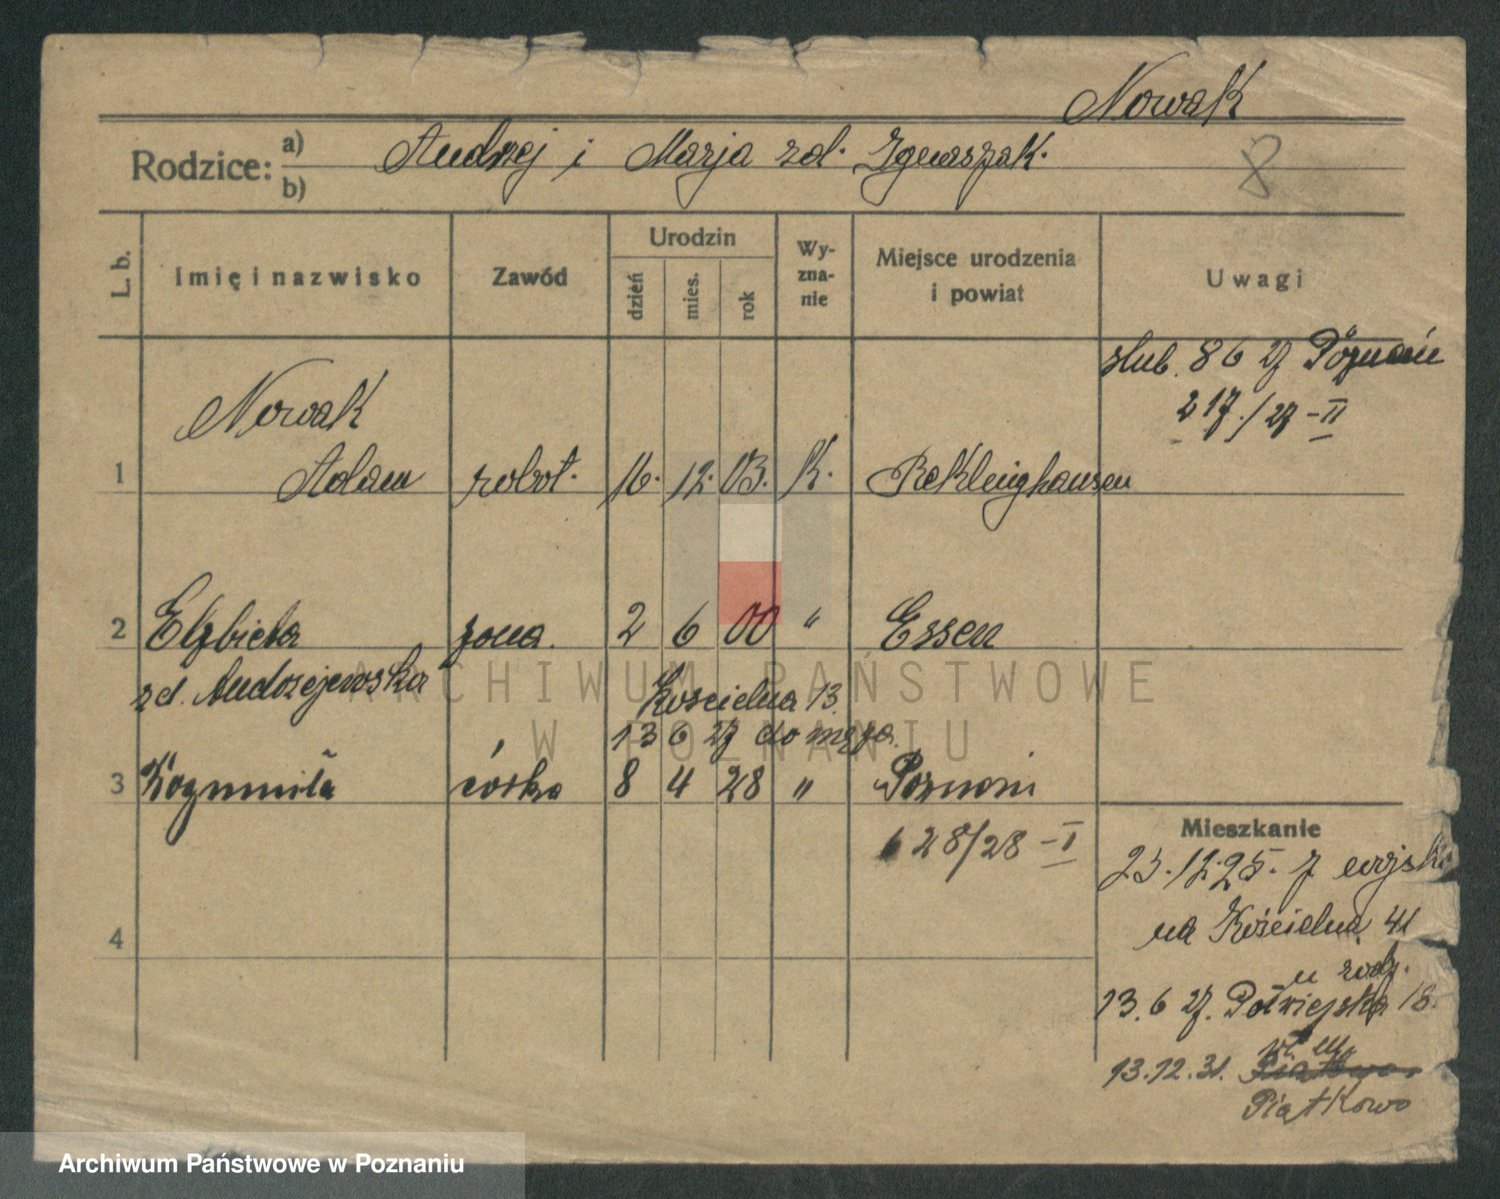 Nowak
Rodzice: a) b)
Andrzej i Marja zd. Ignaszak.
8
L. b.
Imię i nazwisko
Zawód
Urodzin
dzień
mies.
rok
Wy-
zna-
nie
Miejsce urodzenia
i powiat
Uwagi
ślub. 8 6 27 Poznań
217/27 – II
Nowak
1 Adam robot. 16. 12. 03. K. Reklinghausen
2 Elżbieta żona. 2 6 00 " Essen
zd. Andrzejewska
Kościelna 13.
13 6 27 do męża.
3 córka 8 4 28 " Poznań
628/28 – I
4
Mieszkanie
23.12.25. z wojska
na Kościelna 41
u rodz.
13.6 27. Półwiejska 18.
wł. m.
13.12.31. Piątkowo
Piątkowo
ARCHIWUM PAŃSTWOWE
W POZNANIU
Archiwum Państwowe w Poznaniu